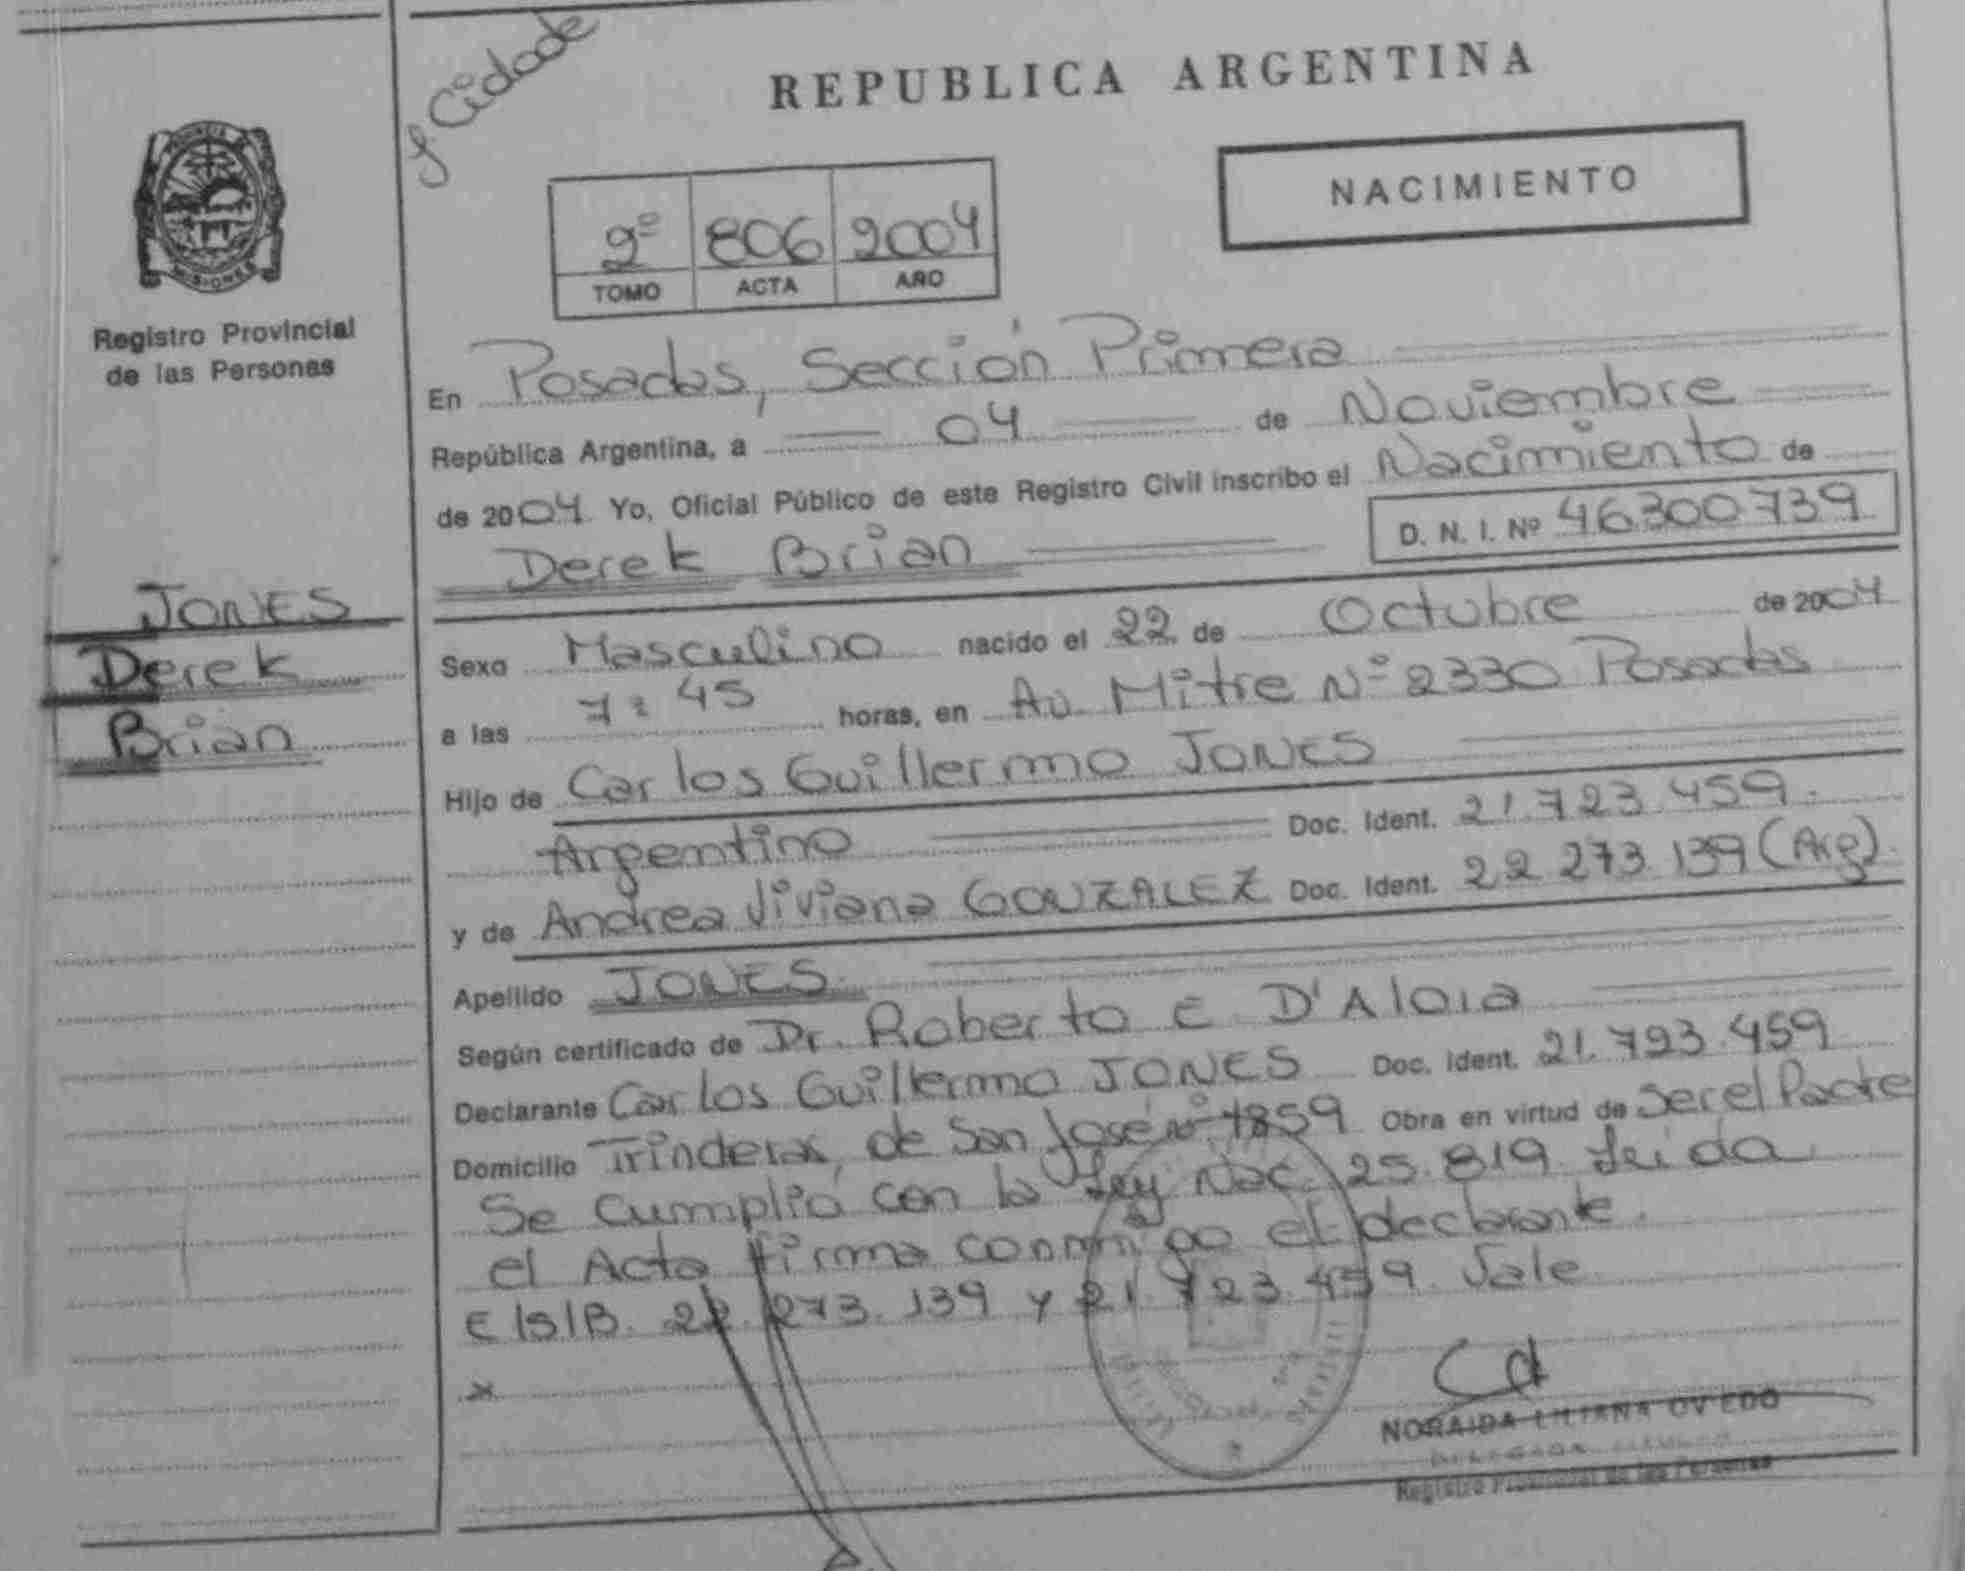 REPUBLICA ARGENTINA
NACIMIENTO
2º 806 2004
TOMO ACTA AÑO
PROVINCIA DE
MISIONES
Registro Provincial
de las Personas
JONES
Derek
Brian
En Posadas, Sección Primera
República Argentina, a 04 de Noviembre
de 2004 Yo, Oficial Público de este Registro Civil inscribo el Nacimiento de
Derek Brian D. N. I. Nº 46300739
Sexo Masculino nacido el 22 de Octubre de 2004
a las 7:45 horas, en Av. Mitre Nº 2330 Posadas
Hijo de Carlos Guillermo JONES
Argentino Doc. Ident. 21.723.459.
y de Andrea Viviana GONZALEZ Doc. Ident. 22 273.139 (Arg).
Apellido JONES.
Según certificado de Dr. Roberto E. D'Aloia
Declarante Carlos Guillermo JONES Doc. Ident. 21.723.459
Domicilio de San José Nº 1859 Obra en virtud de Ser el Padre
Se cumplió con la Ley Nac. 25.819. Leida
el Acta firma conmigo el declarante.
E/S/B. 22.273.139 y 21.723.459. Vale
NORAIDA LILIANA OVIEDO
Registro Provincial de las Personas